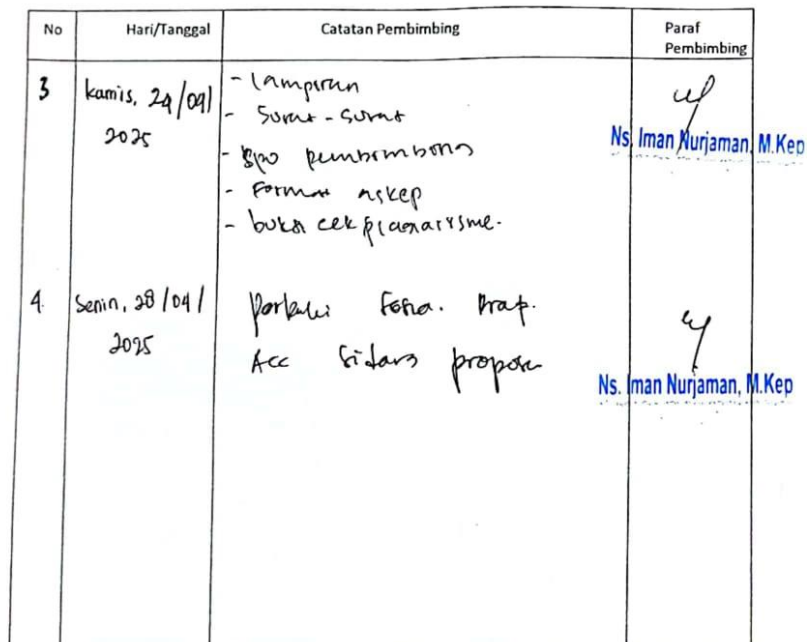 No Hari/Tanggal Catatan Pembimbing Paraf Pembimbing
3 Kamis, 24/04/ 2025
- Lampiran
- Surat-Surat
- SPO pembimbing
- Format askep
- bukti cek plagiarisme.
Ns. Iman Nurjaman, M.Kep
4. Senin, 28/04/ 2025
Acc Sidang proposal
Ns. Iman Nurjaman, M.Kep